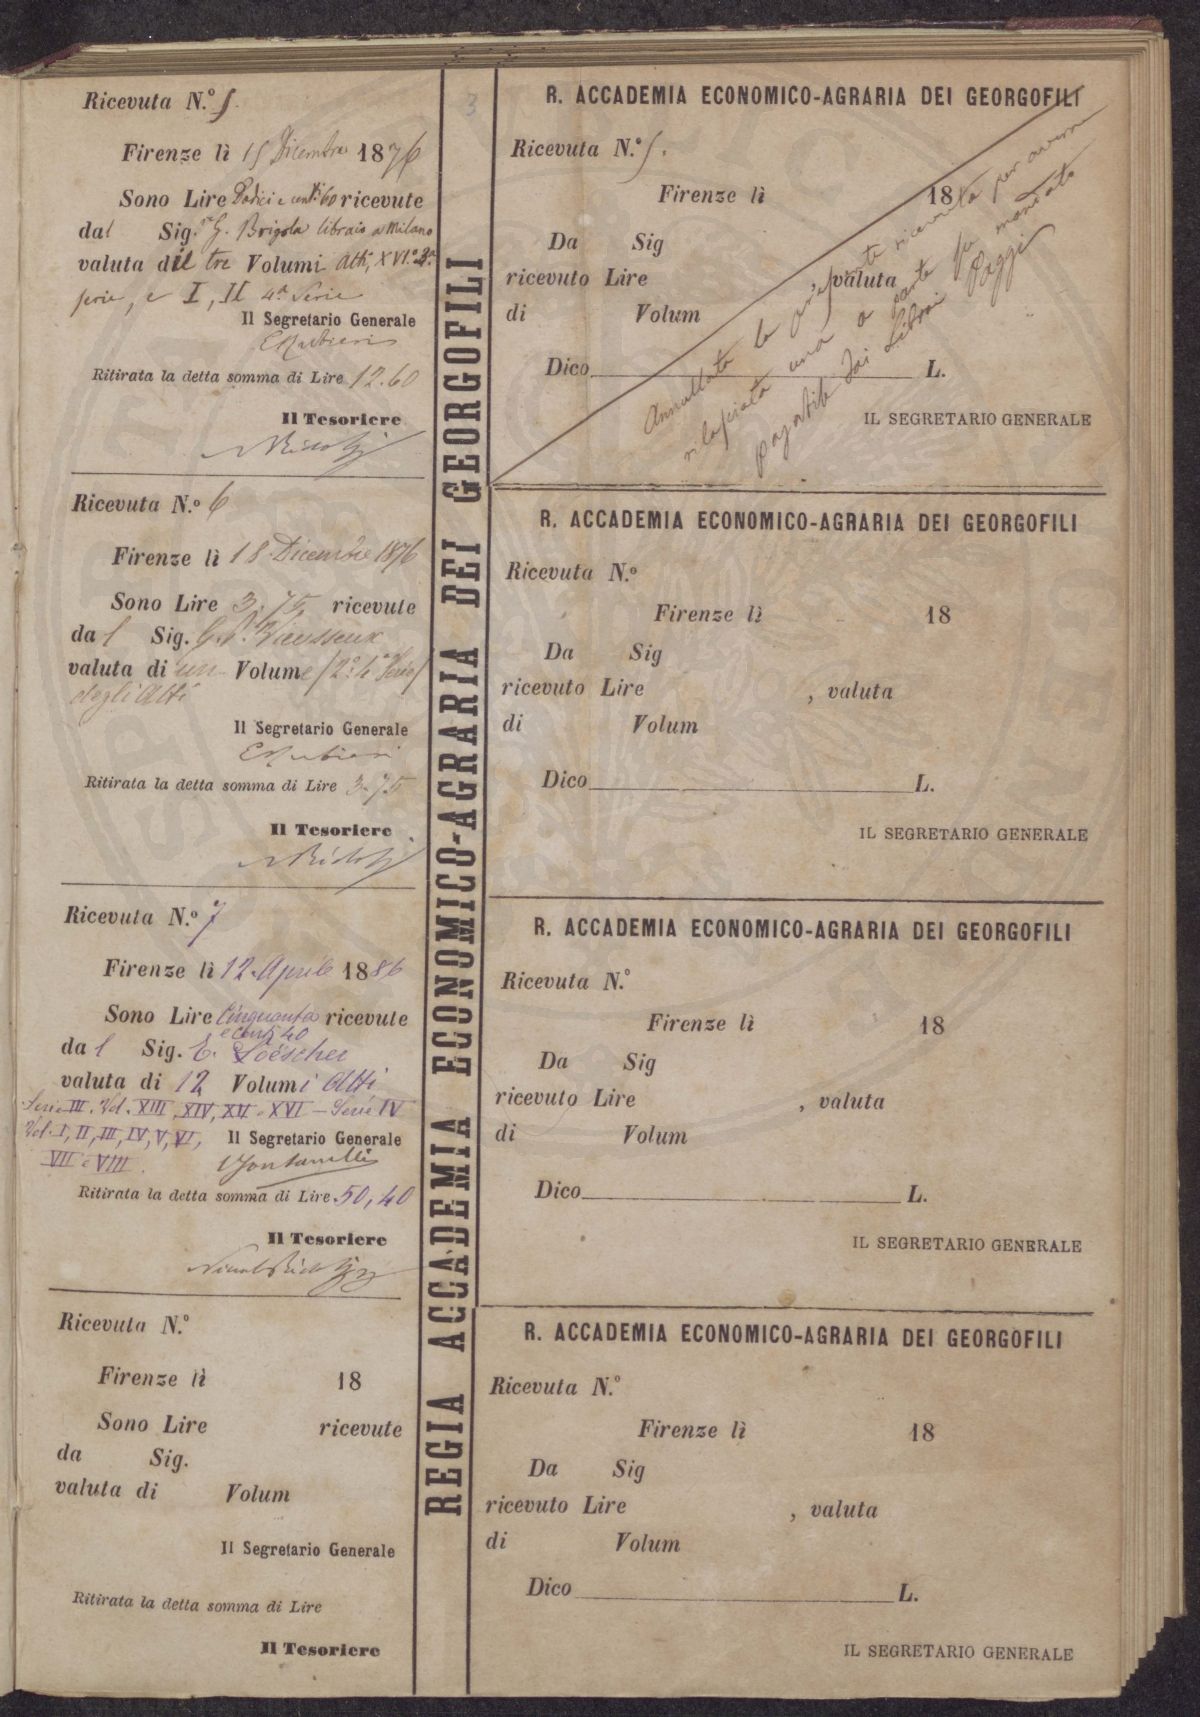 Ricevuta N.º 5.
Firenze lì 15 Dicembre 1876
Sono Lire Dodici e cent.i 60 ricevute
dal Sig.re G. Brigola libraio a Milano
valuta di tre Volumi Atti, XVI.º 3.ª
serie, e I, II 4ª Serie
Il Segretario Generale
E Rubieri
Ritirata la detta somma di Lire 12.60
Il Tesoriere
Ricevuta N.º 6
Firenze lì 18 Dicembre 1876
Sono Lire 3,75 ricevute
dal Sig. G. P. Vieusseux
valuta di un Volume (2º 4ª Serie)
degli Atti
Il Segretario Generale
E Rubieri
Ritirata la detta somma di Lire 3.75
Il Tesoriere
Ricevuta N.º 7
Firenze lì 12 Aprile 1886
Sono Lire Cinquanta ricevute
e cent. 40
dal Sig. E. Loescher
valuta di 12 Volumi Atti
Serie III. Vol. XIII, XIV, XV e XVI – Serie IV
Vol. I, II, III, IV, V, VI, Il Segretario Generale
VII e VIII.
Ritirata la detta somma di Lire 50,40
Il Tesoriere
Ricevuta N.º
Firenze lì 18
Sono Lire ricevute
da Sig.
valuta di Volum
Il Segretario Generale
Ritirata la detta somma di Lire
Il Tesoriere
REGIA ACCADEMIA ECONOMICO-AGRARIA DEI GEORGOFILI
3
R. ACCADEMIA ECONOMICO-AGRARIA DEI GEORGOFILI
Ricevuta N.º 5.
Firenze lì 18
Da Sig
ricevuto Lire , valuta
di Volum
Dico L.
IL SEGRETARIO GENERALE
Annullata la presente ricevuta per averne
rilasciata una a parte su mandato
pagabile dai Librai Paggi
R. ACCADEMIA ECONOMICO-AGRARIA DEI GEORGOFILI
Ricevuta N.º
Firenze lì 18
Da Sig
ricevuto Lire , valuta
di Volum
Dico L.
IL SEGRETARIO GENERALE
R. ACCADEMIA ECONOMICO-AGRARIA DEI GEORGOFILI
Ricevuta N.º
Firenze lì 18
Da Sig
ricevuto Lire , valuta
di Volum
Dico L.
IL SEGRETARIO GENERALE
R. ACCADEMIA ECONOMICO-AGRARIA DEI GEORGOFILI
Ricevuta N.º
Firenze lì 18
Da Sig
ricevuto Lire , valuta
di Volum
Dico L.
IL SEGRETARIO GENERALE